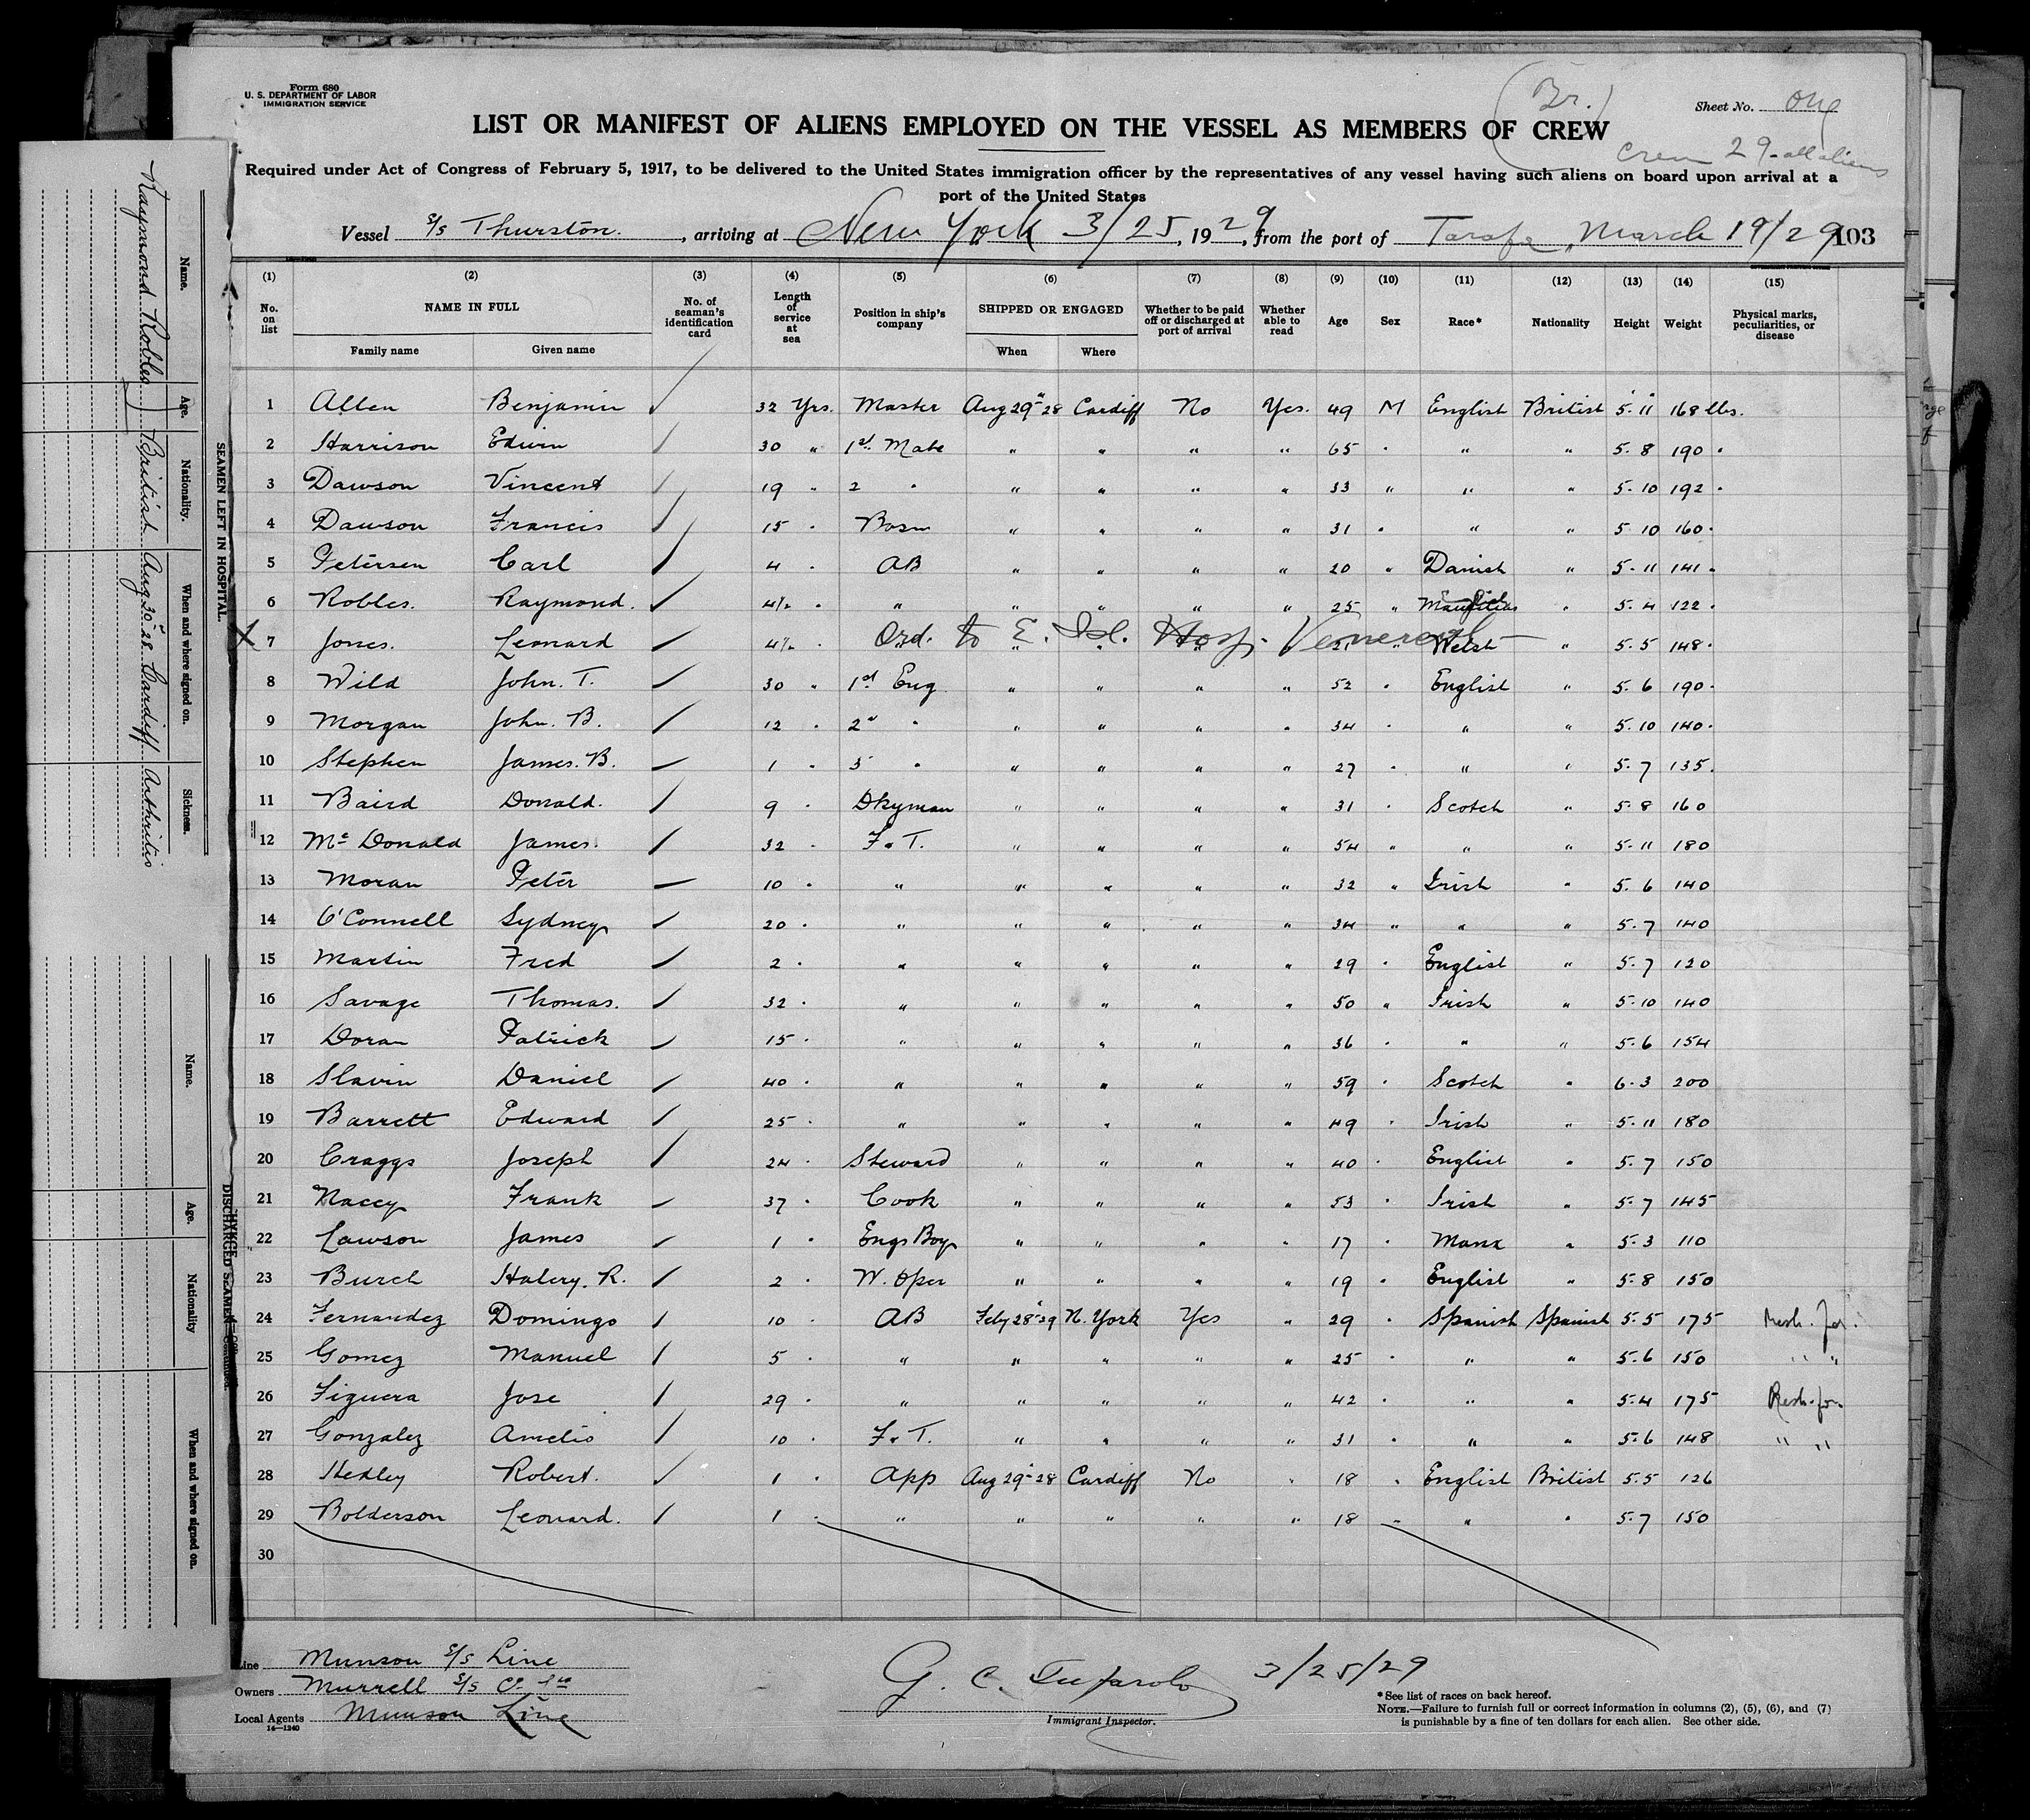 Form 680
U. S. DEPARTMENT OF LABOR
IMMIGRATION SERVICE
(Br.)
Sheet No. One
LIST OR MANIFEST OF ALIENS EMPLOYED ON THE VESSEL AS MEMBERS OF CREW
Crew 29-all aliens
Required under Act of Congress of February 5, 1917, to be delivered to the United States immigration officer by the representatives of any vessel having such aliens on board upon arrival at a
port of the United States
Vessel S/S Thurston. , arriving at New York 3/25, 1929, from the port of Tarafa, March 19/29 103
(1) (2) (3) (4) (5) (6) (7) (8) (9) (10) (11) (12) (13) (14) (15)
No. on list NAME IN FULL Family name Given name No. of seaman's identification card Length of service at sea Position in ship's company SHIPPED OR ENGAGED When Where Whether to be paid off or discharged at port of arrival Whether able to read Age Sex Race* Nationality Height Weight Physical marks, peculiarities, or disease
1 Allen Benjamin 32 Yrs. Master Aug 29" 28 Cardiff No Yes. 49 M English British 5.11 168 lbs.
2 Harrison Edwin 30 " 1st Mate " " " " 65 " " " 5.8 190 "
3 Dawson Vincent 19 " 2 " " " " " 33 " " " 5.10 192 "
4 Dawson Francis 15 " Bosn " " " " 31 " " " 5 10 160 "
5 Petersen Carl 4 " AB " " " " 20 " Danish " 5.11 141 "
6 Robles. Raymond. 4½ " " " " " " 25 " " 5.4 122 "
7 Jones. Leonard 4½ " Ord. to E. Isl. Hosp. " " " " 21 " Welsh " 5.5 148 "
8 Wild John. T. 30 " 1st Eng " " " " 52 " English " 5.6 190 "
9 Morgan John. B. 12 " 2" " " " " " 34 " " " 5.10 140 "
10 Stephen James. B. 1 " 3 " " " " " 27 " " " 5.7 135.
11 Baird Donald. 9 " Dkyman " " " " 31 " Scotch " 5.8 160
12 Mc Donald James 32 " F.T. " " " " 54 " " " 5.11 180
13 Moran Peter 10 " " " " " " 32 " Irish " 5.6 140
14 O'Connell Sydney 20 " " " " " " 34 " " " 5.7 140
15 Martin Fred 2 " " " " " " 29 " English " 5.7 120
16 Savage Thomas. 32 " " " " " " 50 " Irish " 5.10 140
17 Doran Patrick 15 " " " " " " 36 " " " 5.6 154
18 Slavin Daniel 40 " " " " " " 59 " Scotch " 6.3 200
19 Barrett Edward 25 " " " " " " 49 " Irish " 5.11 180
20 Craggs Joseph 24 " Steward " " " " 40 " English " 5.7 150
21 Macey Frank 37 " Cook " " " " 53 " Irish " 5.7 145
22 Lawson James 1 " Engs Boy " " " " 17 " Manx " 5.3 110
23 Burch Halery. R. 2 " W. Oper " " " " 19 " English " 5.8 150
24 Fernandez Domingo 10 " AB Feby 28" 29 N. York Yes " 29 " Spanish Spanish 5.5 175 Resh. for.
25 Gomez Manuel 5 " " " " " " 25 " " " 5.6 150 " "
26 Figuera Jose 29 " " " " " " 42 " " " 5.4 175 Resh. for.
27 Gonzalez Amelio 10 " F.T. " " " " 31 " " " 5.6 148 " "
28 Hedley Robert. 1 " App Aug 29" 28 Cardiff No " 18 " English British 5.5 126
29 Bolderson Leonard. 1 " " " " " " 18 " " " 5.7 150
30
Line Munson S/S Line
Owners Murrell S/S Co Ltd
Local Agents Munson Line
14—1240
G. C. 3/25/29
Immigrant Inspector.
*See list of races on back hereof.
NOTE.—Failure to furnish full or correct information in columns (2), (5), (6), and (7)
is punishable by a fine of ten dollars for each alien. See other side.
SEAMEN LEFT IN HOSPITAL.
Name. Age. Nationality. When and where signed on. Sickness.
Raymond Robles British Aug 30" 28 Cardiff Arthritis
DISCHARGED SEAMEN—Continued.
Name. Age. Nationality When and where signed on.